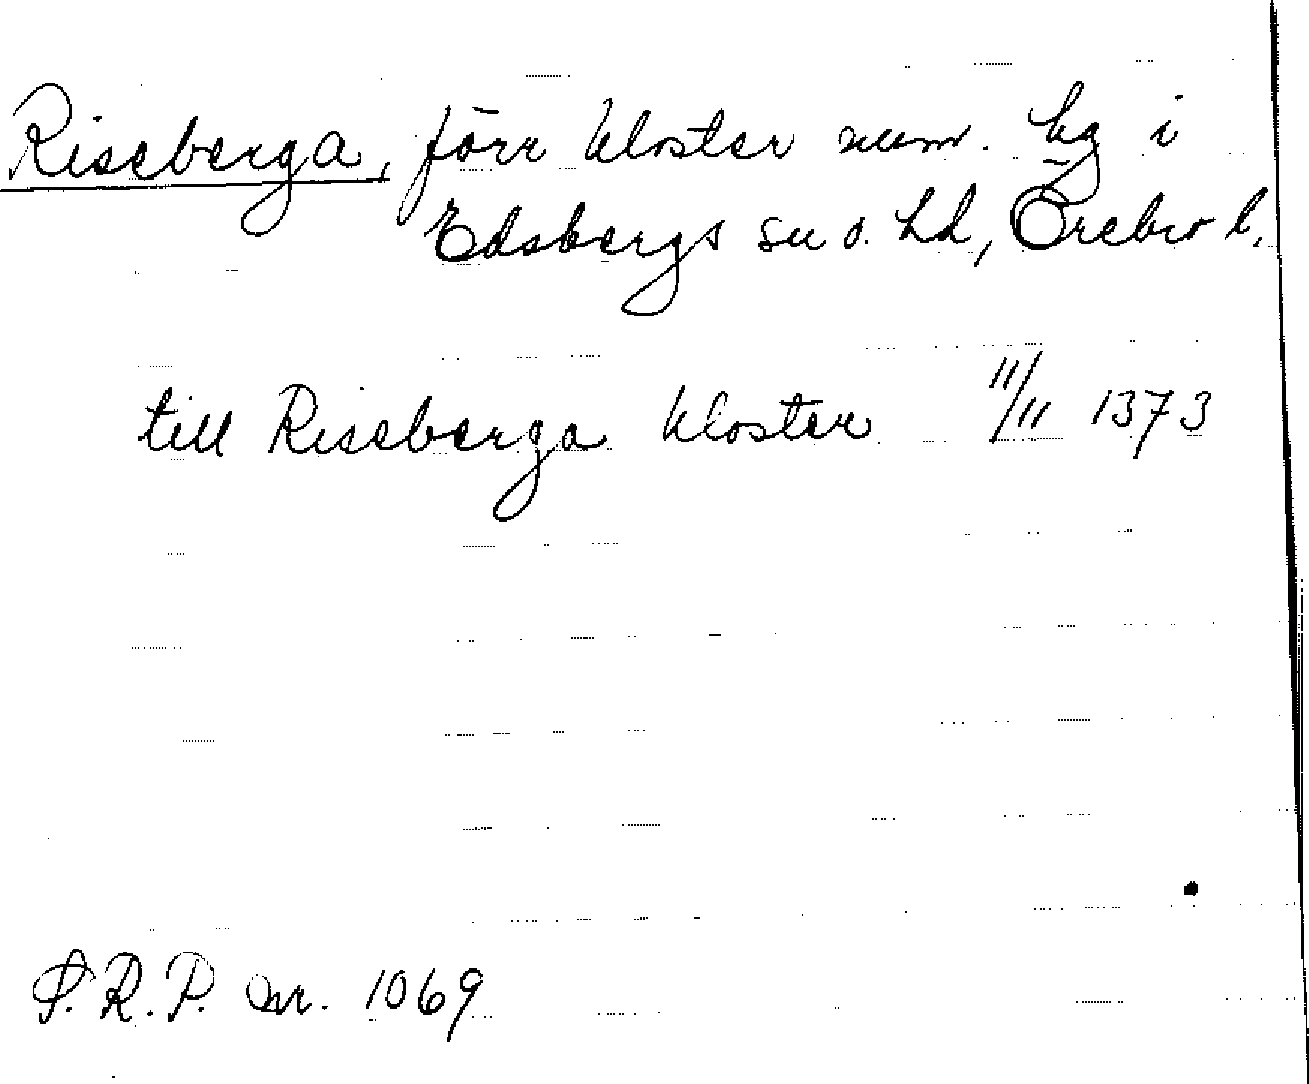 Riseberga, förr kloster num. hg i
Edsbergs sn o. hd, Örebro l.
till Riseberga kloster 11/11 1373
S.R.P. nr. 1069